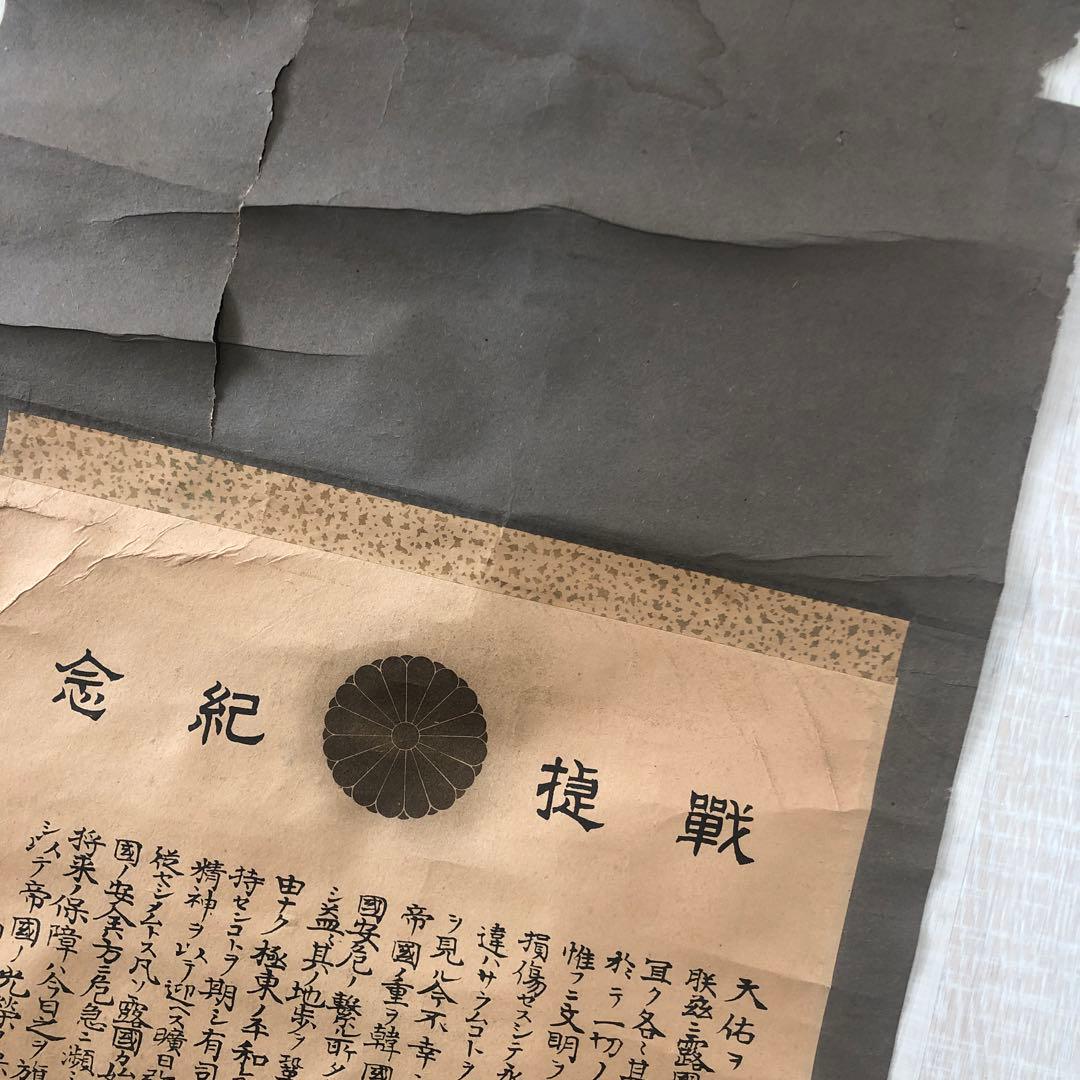 戰捷紀念
天佑ヲ
朕茲ニ露國
宜ク各〻其
於テ一切ノ
惟フニ文明ヲ
損傷セスシテ永
違ハサラムコトヲ
ヲ見ル今不幸ニ
帝國ノ重ヲ韓國
國安危ノ繫ル所タ
シ益〻其ノ地歩ヲ鞏
由ナク極東ノ平和
持センコトヲ期シ有司
精神ヲ以テ迎ヘス曠日
從セシメムトス凡ソ露國カ始
國ノ安全方ニ危急ニ瀕
將来ノ保障ハ今日之ヲ旗
シテ帝國ノ光榮